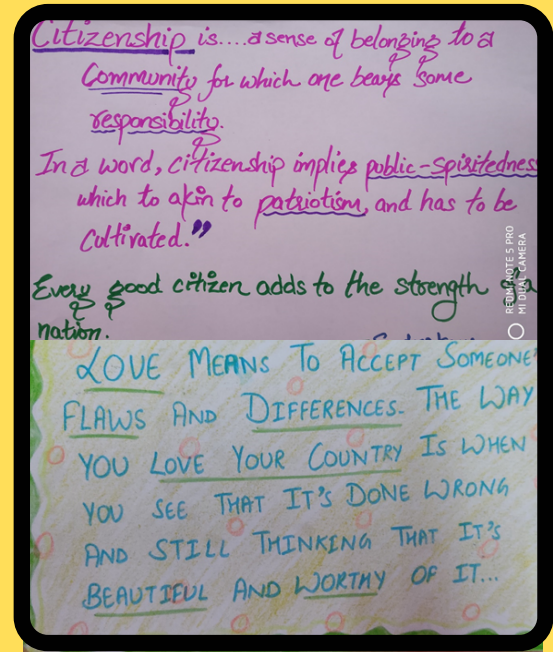 Citizenship is....a sense of belonging to a
Community for which one bears some
responsibility.
In a word, citizenship implies public-spiritedness
which to akin to patriotism, and has to be
Cultivated."
Every good citizen adds to the strength of a
nation.
REDMI NOTE 5 PRO
MI DUAL CAMERA
LOVE MEANS TO ACCEPT SOMEONE'
FLAWS AND DIFFERENCES. THE WAY
YOU LOVE YOUR COUNTRY IS WHEN
YOU SEE THAT IT'S DONE WRONG
AND STILL THINKING THAT IT'S
BEAUTIFUL AND WORTHY OF IT...